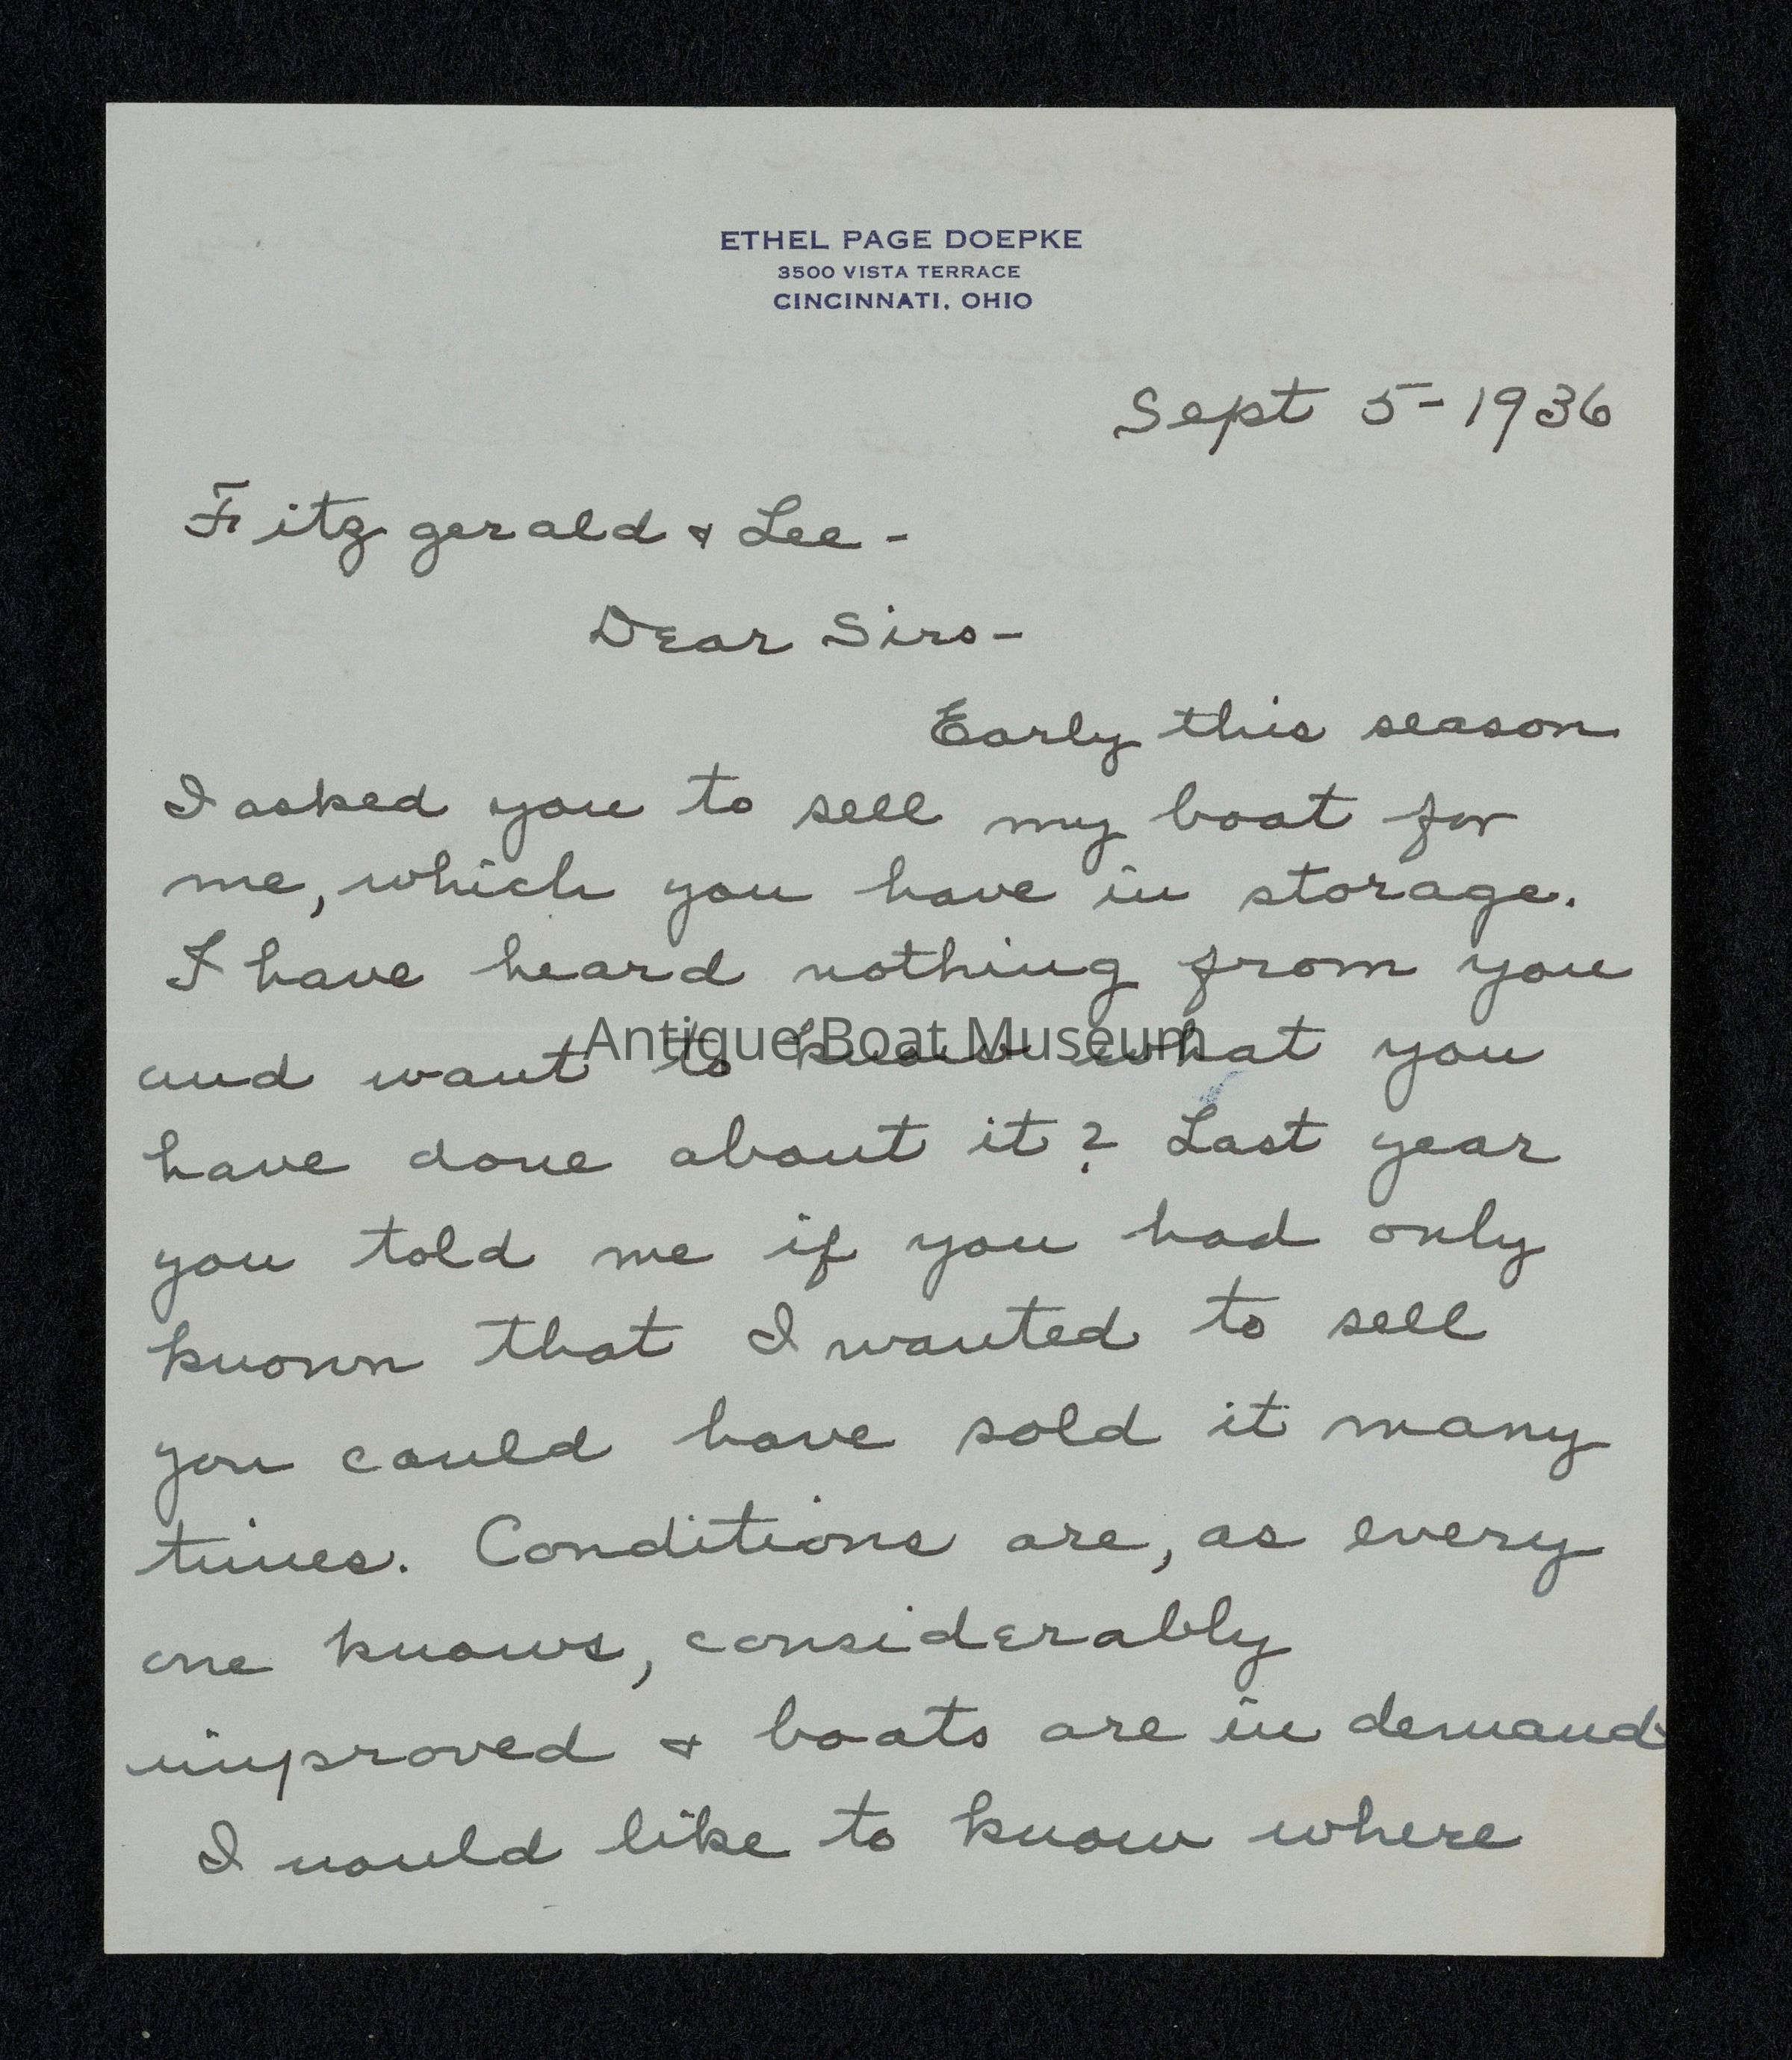 ETHEL PAGE DOEPKE
3500 VISTA TERRACE
CINCINNATI, OHIO
Sept 5-1936
Fitzgerald & Lee -
Dear Sirs -
Early this season
I asked you to sell my boat for
me, which you have in storage.
I have heard nothing from you
Antique Boat Museum
and want to know what you
have done about it? Last year
you told me if you had only
known that I wanted to sell
you could have sold it many
times. Conditions are, as every
one knows, considerably
improved & boats are in demand
I would like to know where